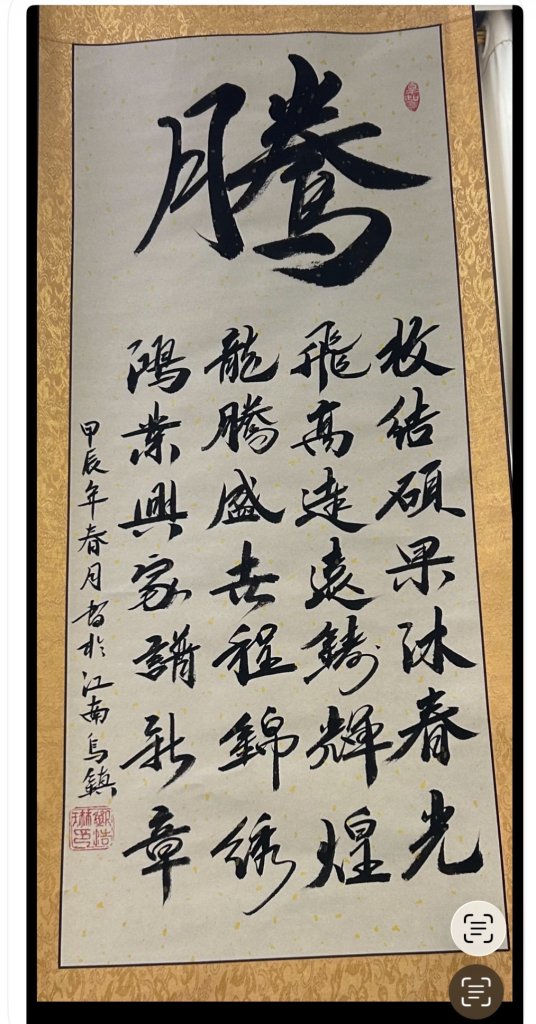 騰
枚結碩果沐春光
飛高走遠鑄輝煌
龍騰盛世程錦绣
鴻業興家譜新章
甲辰年春月書於江南烏鎮